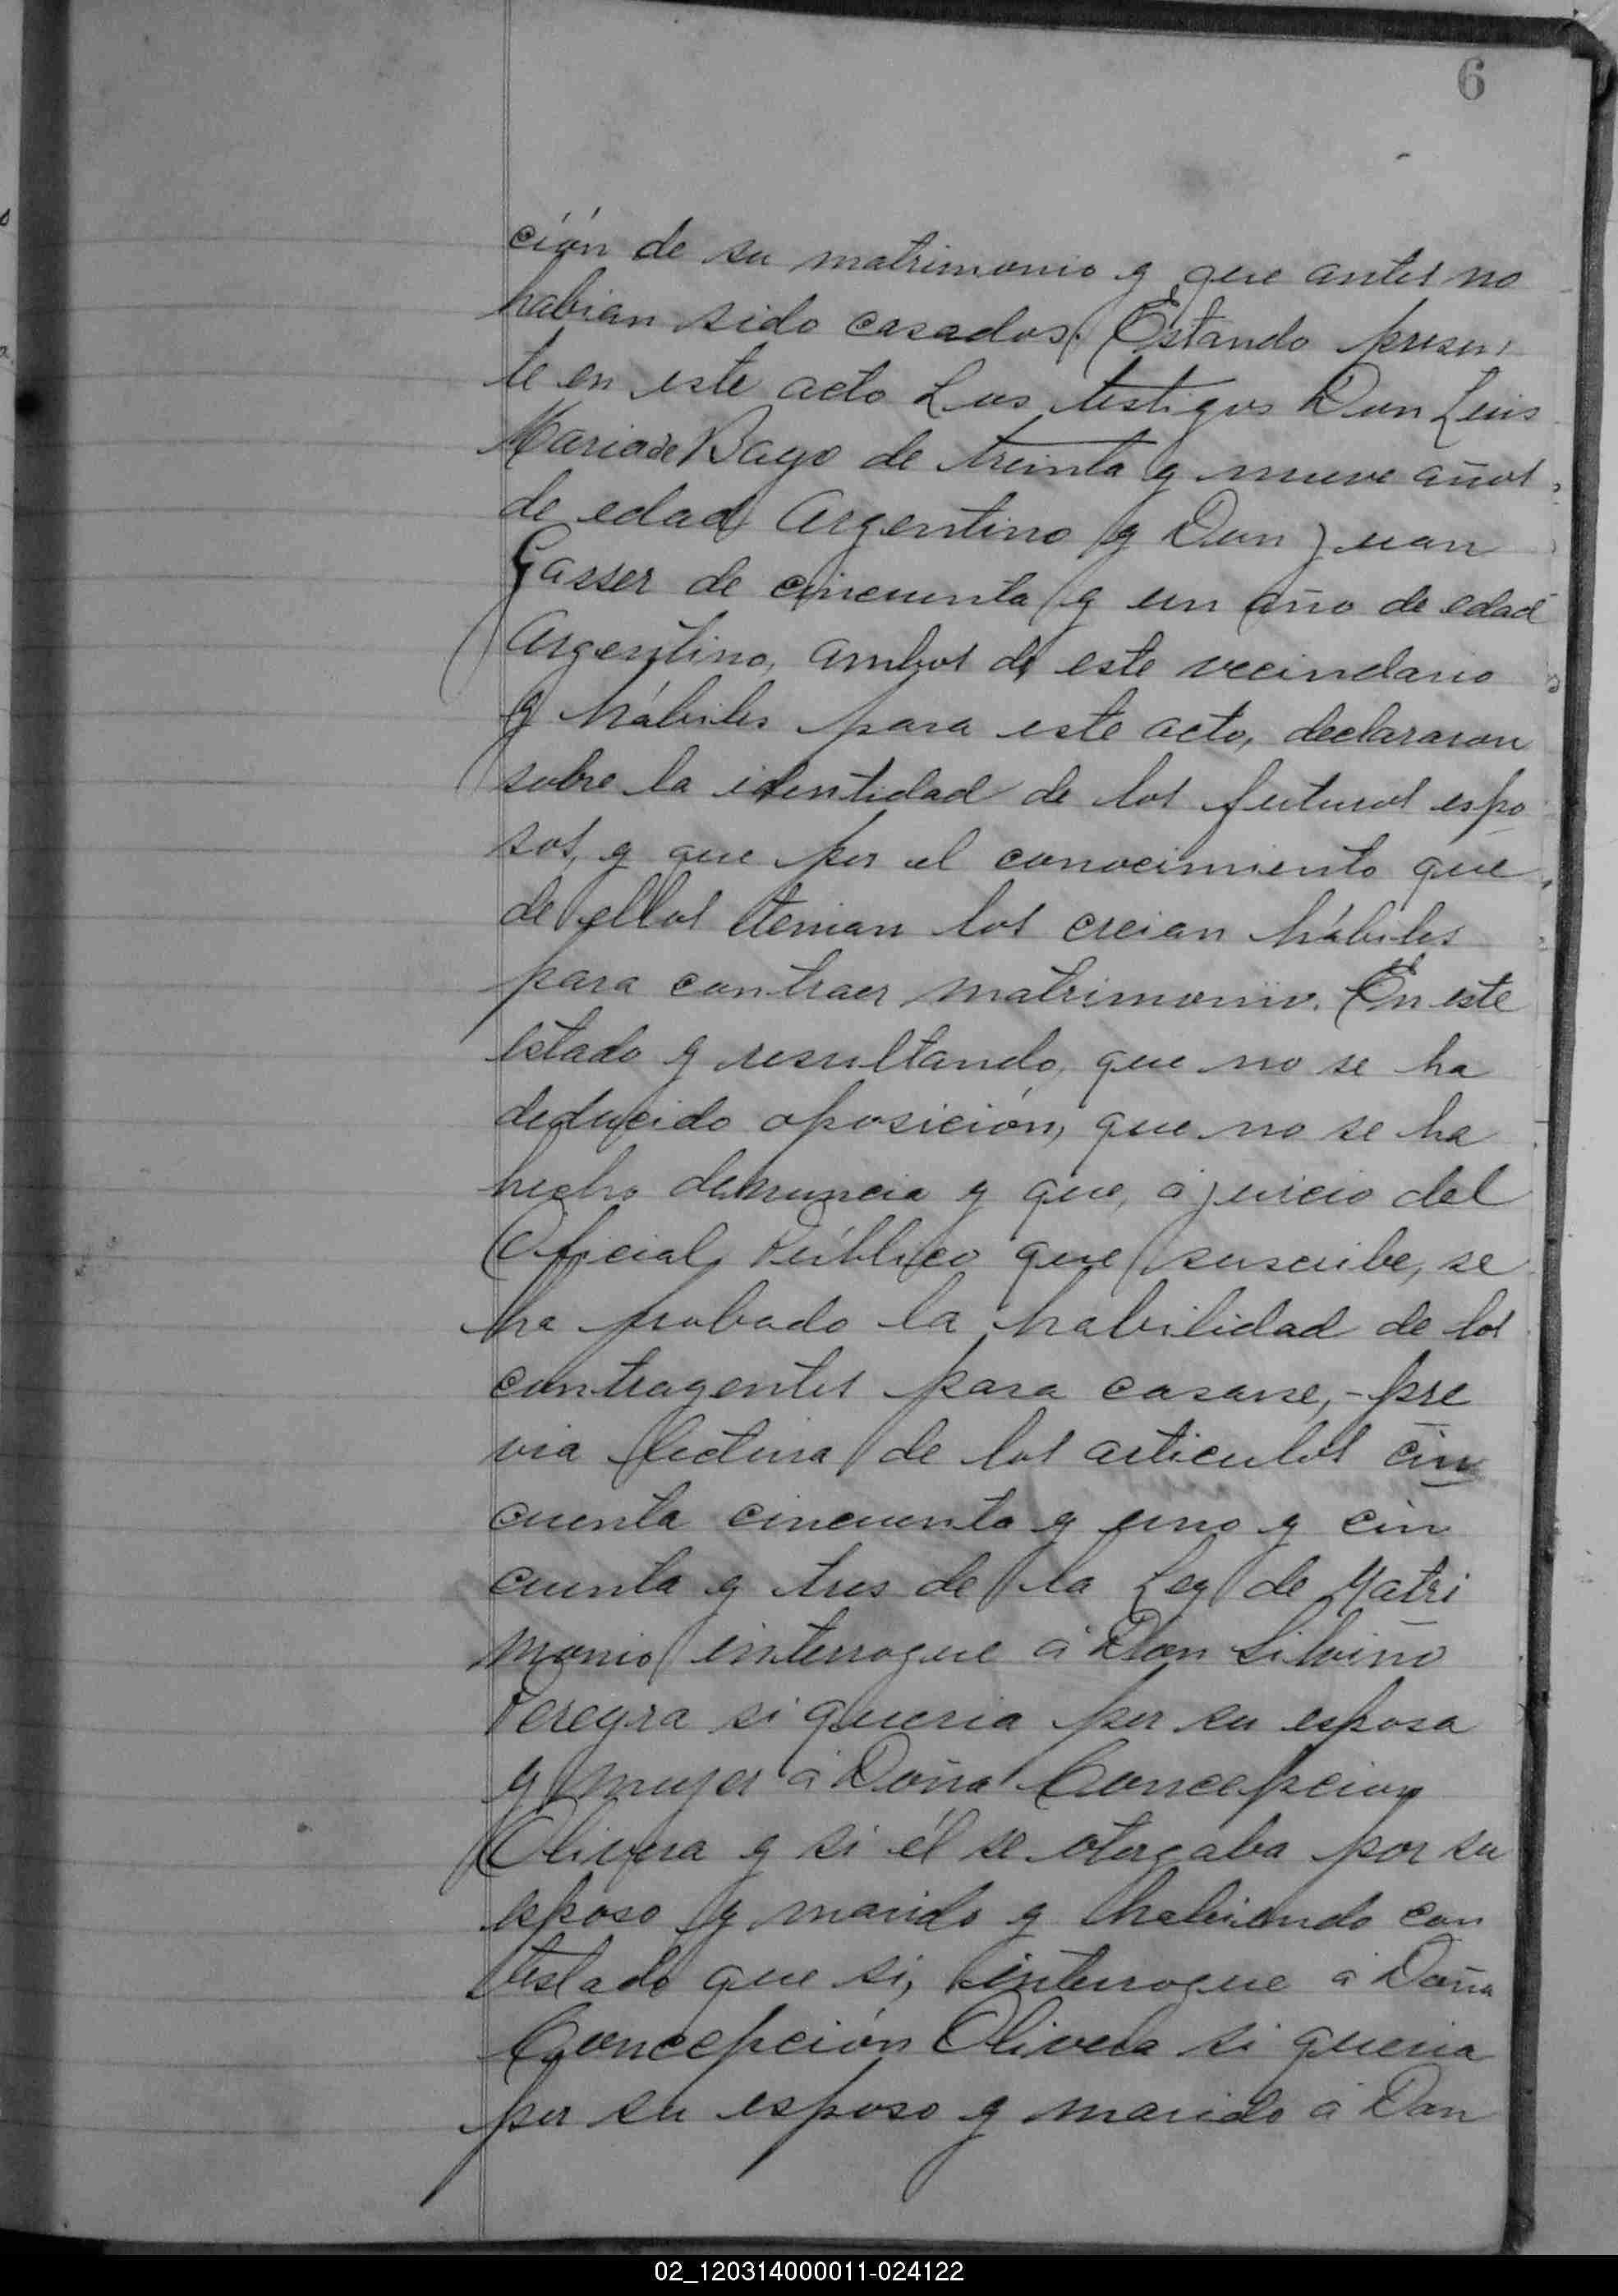 6
ción de su matrimonio y que antes no
habian sido casados. Estando presen
te en este acto Los testigos Don Luis
Maria de Bago de treinta y nueve años
de edad Argentino y Don Juan
Gasser de cincuenta y un año de edad
Argentino, ambos de este vecindario
y hábiles para este acto, declararon
sobre la identidad de los futuros espo
sos, y que por el conocimiento que
de ellos tenian los creian hábiles
para contraer matrimonio. En este
estado y resultando, que no se ha
deducido oposición, que no se ha
hecho denuncia y que, á juicio del
Oficial Público que suscribe, se
ha probado la habilidad de los
contragentes para casarse, - pre
via lectura de los articulos cin
cuenta cincuenta y uno y cin
cuenta y tres de la Ley de Matri
monio interrogue á Don Silvino
Pereyra si queria por su esposa
y mujer á Doña Concepcion
Olivera y si él se otorgaba por su
esposo y marido y habiendo con
testado que si, interrogue á Doña
Concepción Olivera si queria
por su esposo y marido á Don
02_120314000011-024122